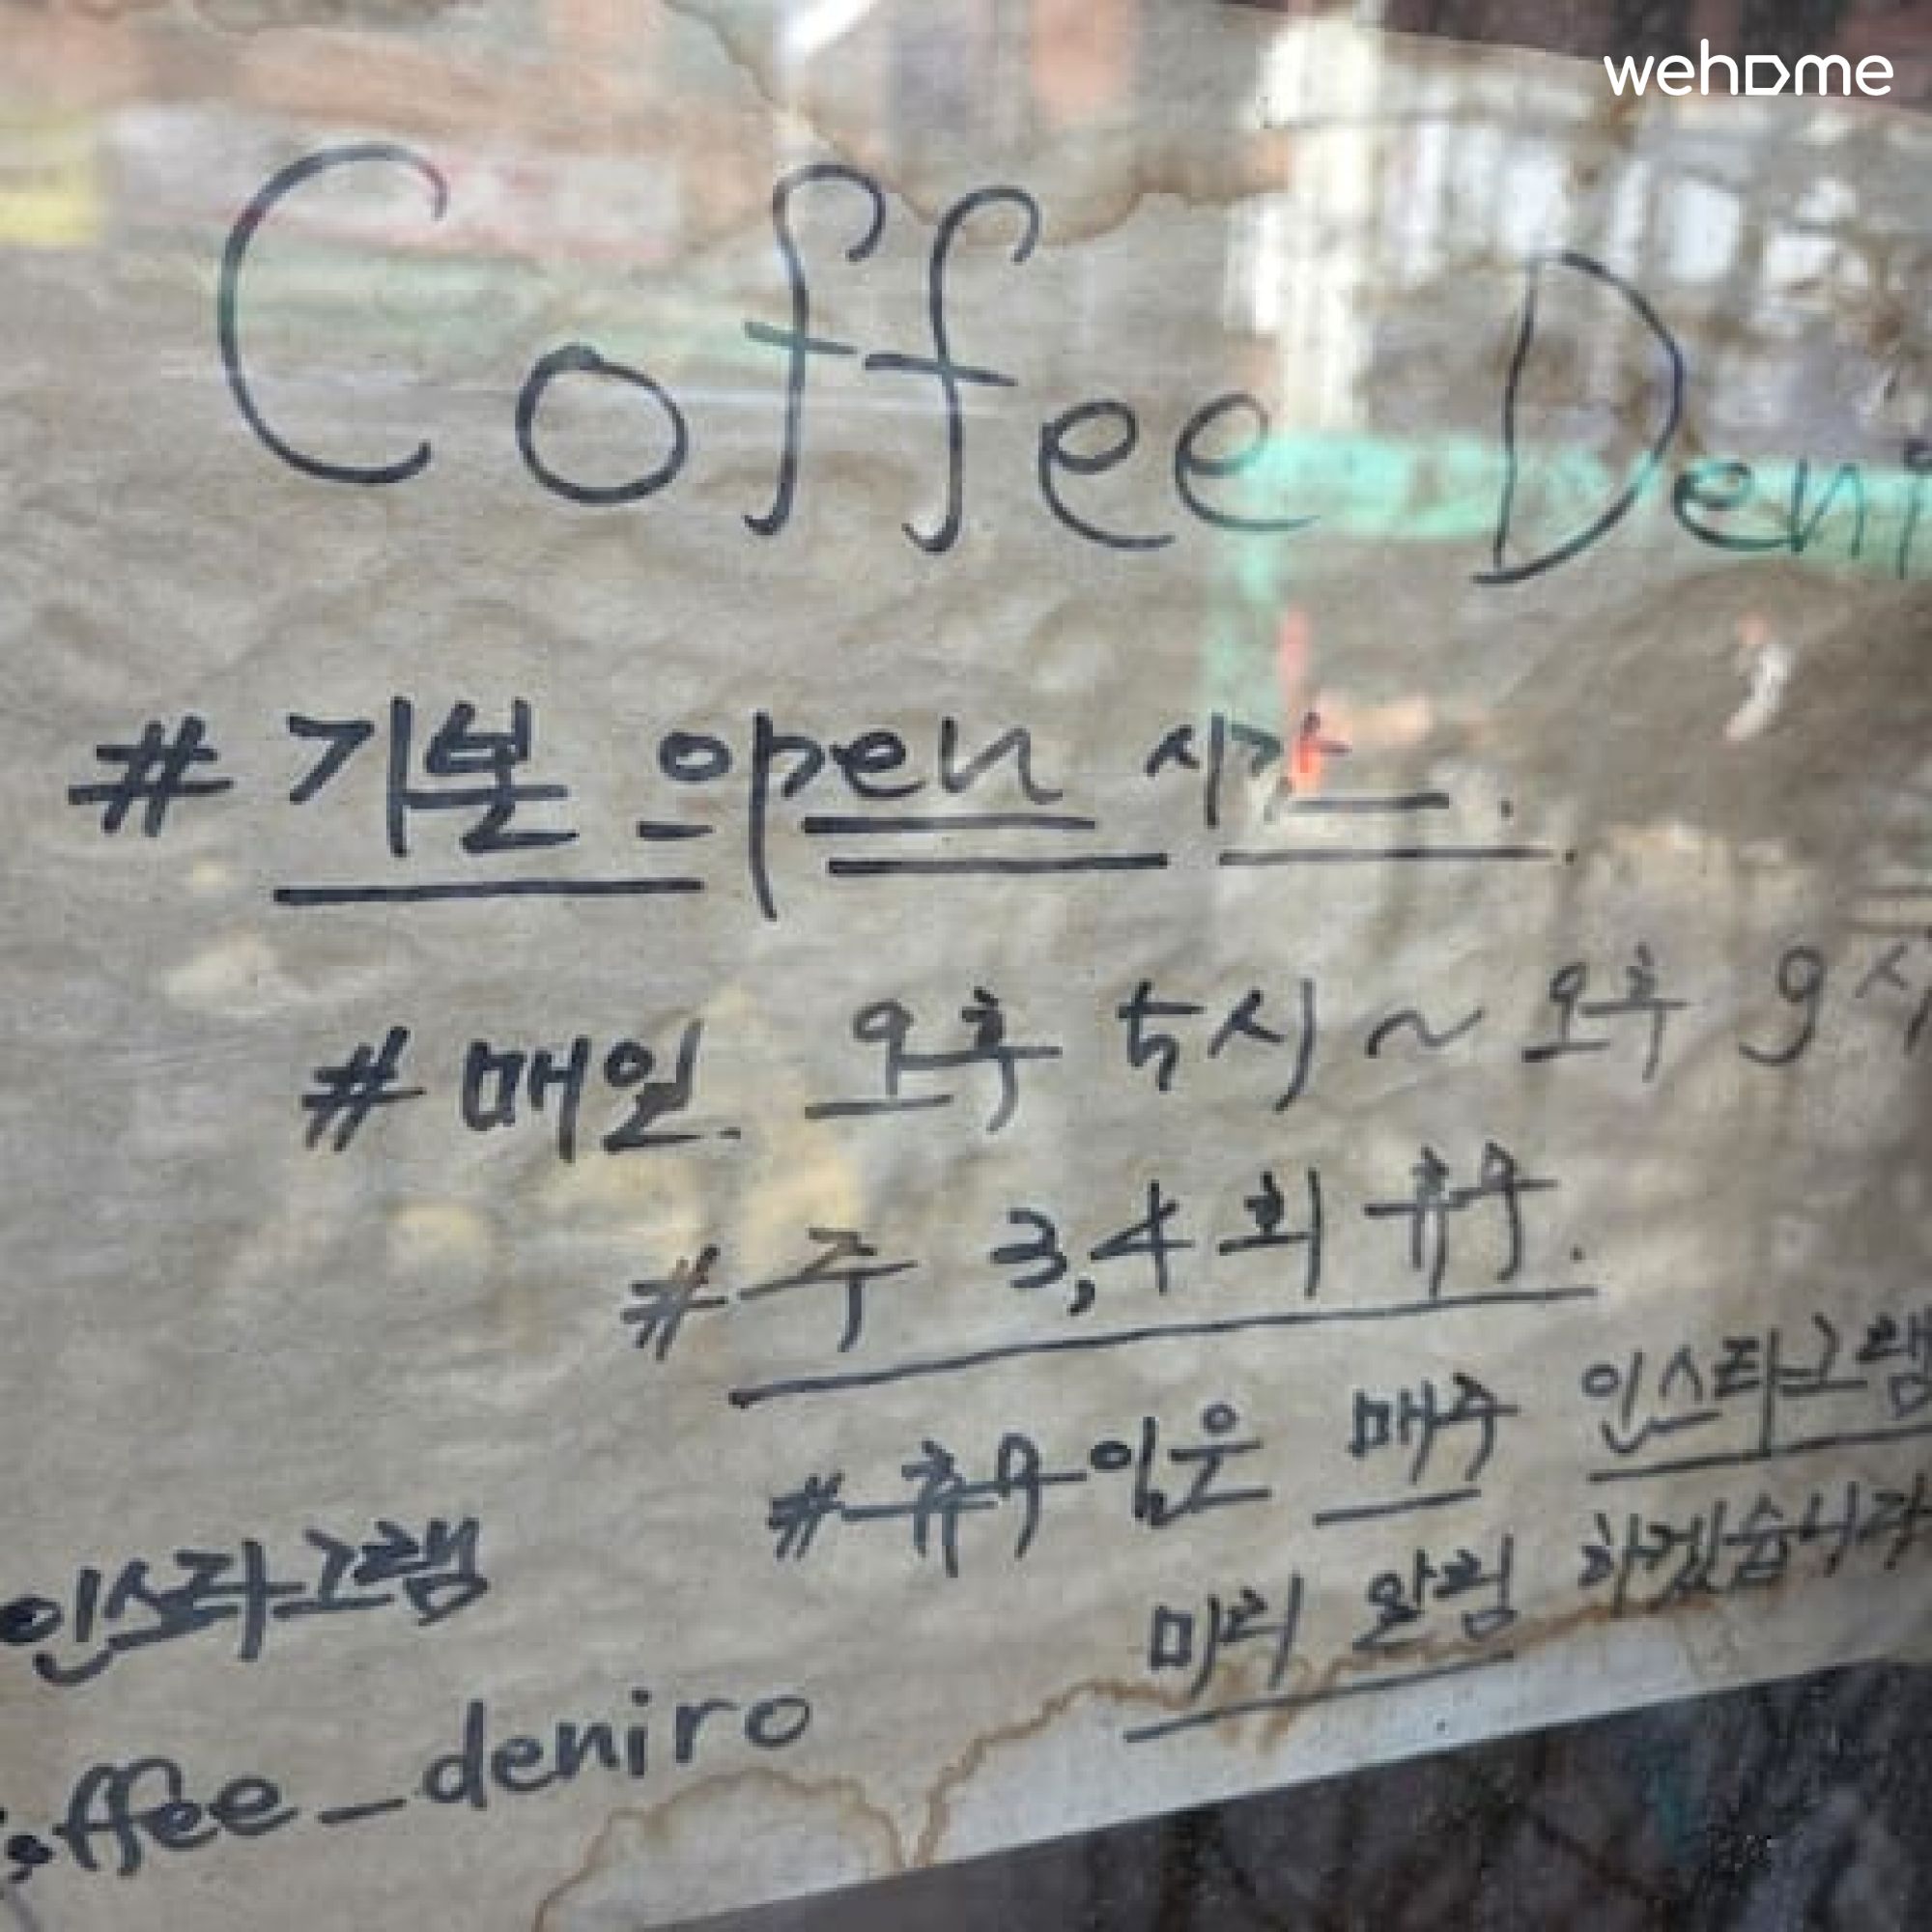 wehome
Coffee Deni
# 기본 open 시간.
# 매일. 오후 5시 ~ 오후 9시
# 주 3,4회 휴무.
# 휴무일은 매주 인스타그램
미리 알림 하겠습니다
인스타그램
coffee_deniro